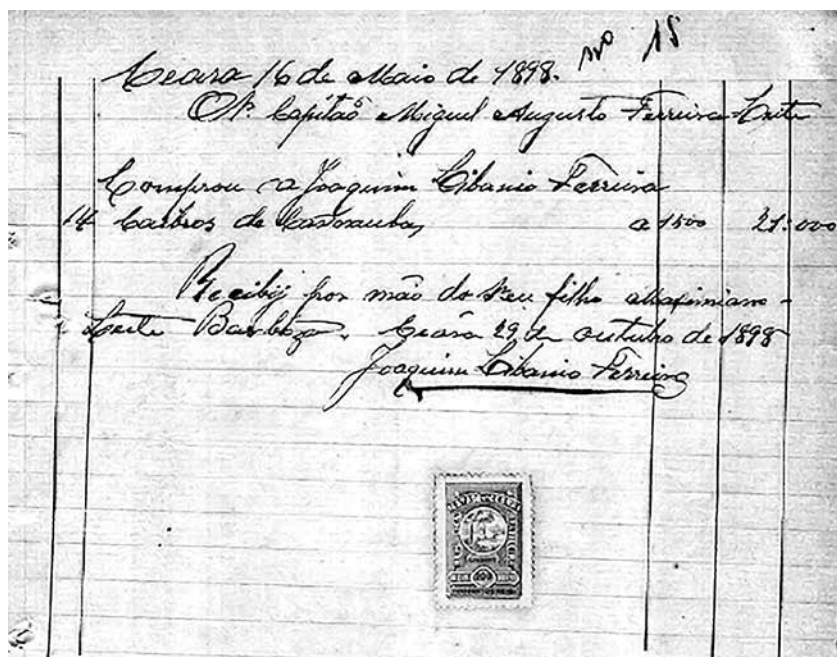 No 15
Ceara 16 de Maio de 1898.
O Sr. Capitão Miguel Augusto Ferreira Leite
Comprou a Joaquim Libanio Ferreira
14 Caibros de Carnauba, a 1500 21:000
Recibij por mão do seu filho Maximiano
Leite Barboza. Ceara 29 de outubro de 1898
Joaquim Libanio Ferreira